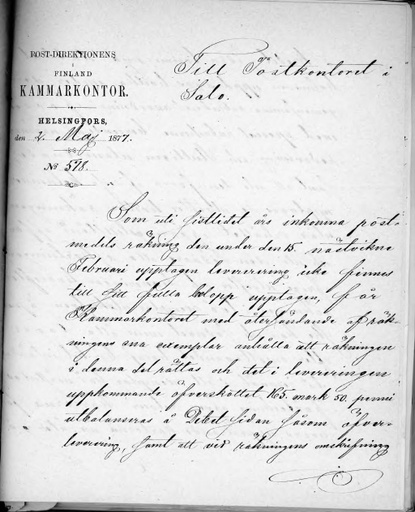 POST-DIREKTIONENS
i
FINLAND
KAMMARKONTOR.
HELSINGFORS,
den 2 Maj 1877.
No 598.
Till Postkontoret i
Salo.
Som uti sistlidet års inkomna post-
medels räkning den under den 15 nästvikne
Februari upptagen leverering icke finnes
till sitt fulla belopp upptagen, får
Kammarkontoret med återsändande af räk-
ningens ena exemplar anhålla att räkningen
i denna del rättas och det i levereringen
uppkommande öfverskottet 165 mark 50 penni
utbalanseras å Debet sidan såsom öfver-
leverering, samt att vid räkningens omskrifning